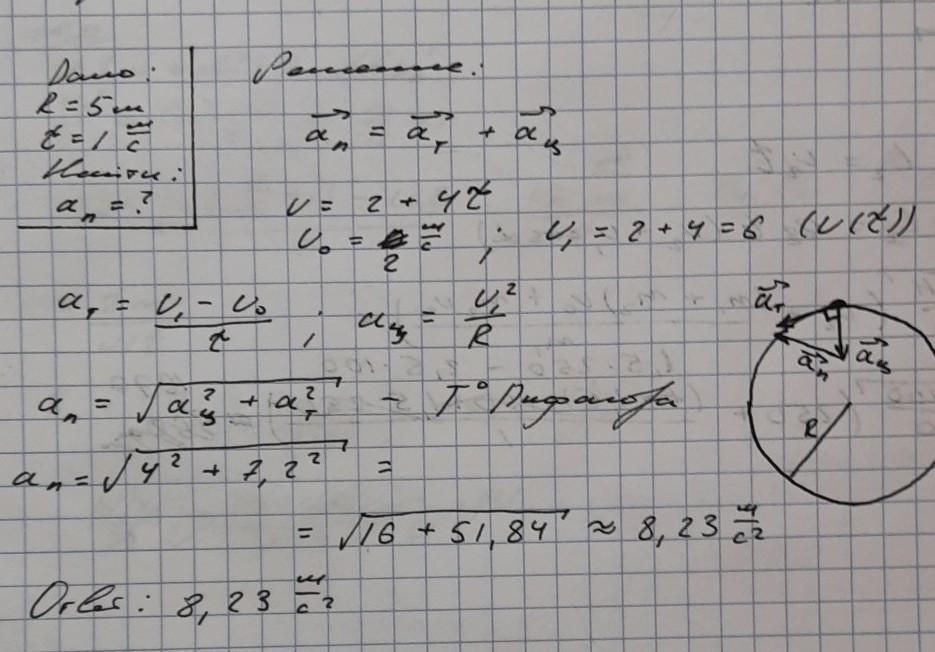 Дано:
R = 5 м
t = 1 м/с
Найти:
aп = ?
Решение:
aп = aт + aц
v = 2 + 4t
v₀ = 2 м/с ; v₁ = 2 + 4 = 6 (v(t))
aт = (v₁ - v₀)/t ; aц = v₁²/R
aп = √(aц² + aт²) - Т° Пифагора
aп = √(4² + 7,2²) =
= √(16 + 51,84) ≈ 8,23 м/с²
Ответ: 8,23 м/с²
aт
aп
aц
R